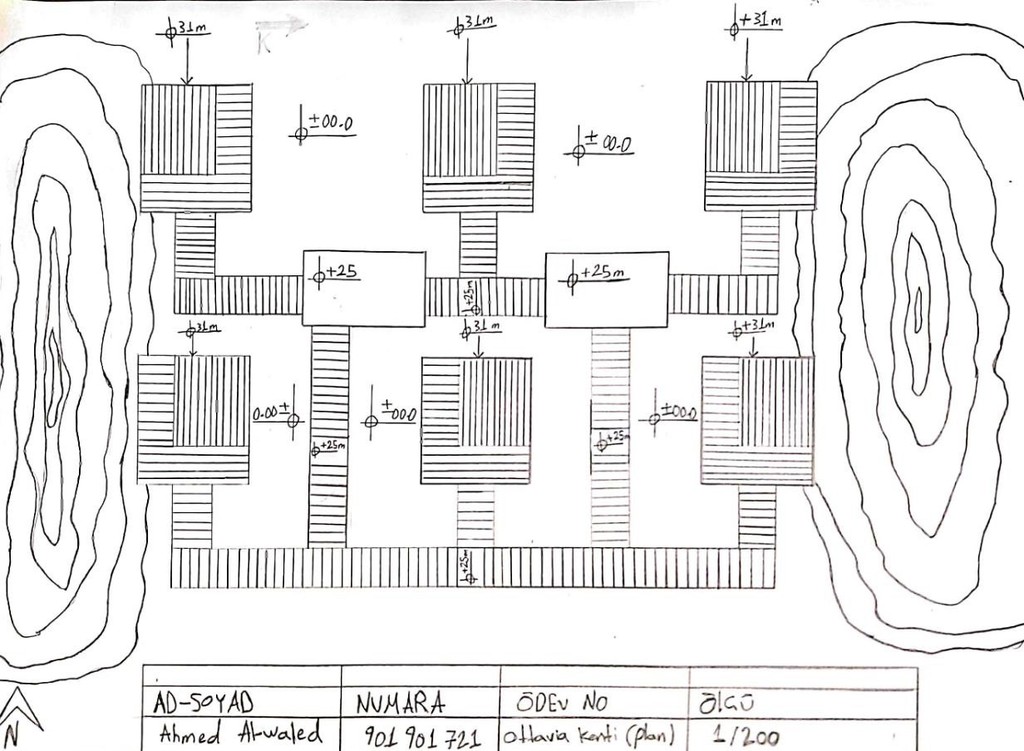 31m
31m
+31m
K
±00.0
±00.0
+25
+25m
+25m
31m
31m
+31m
0.00±
±00.0
±00.0
+25m
+25m
+25m
AD-SOYAD NUMARA ÖDEV NO ÖLÇÜ
N Ahmed Al-waled 901 901 721 Ottavia Kenti (plan) 1/200